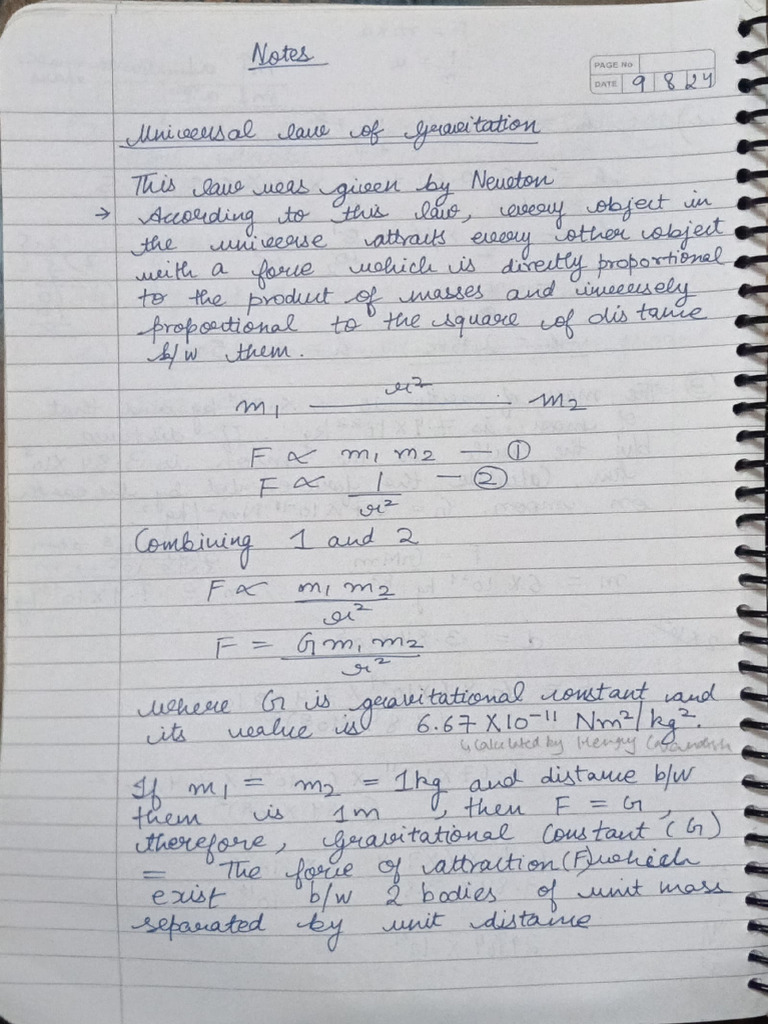 Notes
PAGE No
DATE 9 8 24
Universal law of Gravitation
This law was given by Newton
→ According to this law, every object in
the universe attracts every other object
with a force which is directly proportional
to the product of masses and inversely
proportional to the square of distance
b/w them.
m₁ — r² — m₂
F ∝ m₁ m₂ — ①
F ∝ 1/r² — ②
Combining 1 and 2
F ∝ m₁ m₂/r²
F = G m₁ m₂/r²
where G is gravitational constant and
its value is 6.67 X 10⁻¹¹ Nm²/kg².
↳ Calculated by Henry Cavendish
If m₁ = m₂ = 1kg and distance b/w
them is 1m , then F = G,
therefore, Gravitational Constant (G)
= The force of attraction (F) which
exist b/w 2 bodies of unit mass
separated by unit distance